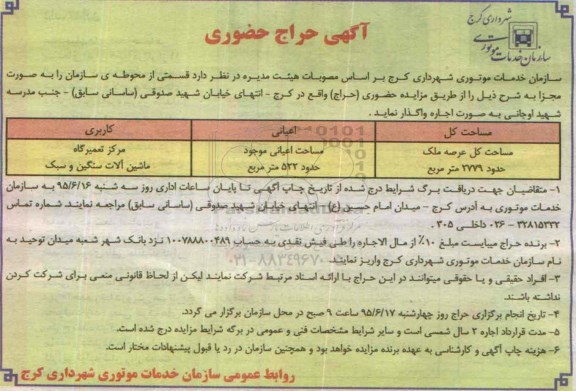 شهرداری کرج
سازمان خدمات موتوری
آگهی حراج حضوری
سازمان خدمات موتوری شهرداری کرج بر اساس مصوبات هیئت مدیره در نظر دارد قسمتی از محوطه ی سازمان را به صورت
مجزا به شرح ذیل را از طریق مزایده حضوری (حراج) واقع در کرج - انتهای خیابان شهید صدوقی (ساسانی سابق) - جنب مدرسه
شهید اوجانی به صورت اجاره واگذار نماید.
مساحت کل اعیانی کاربری
مساحت کل عرصه ملک مساحت اعیانی موجود مرکز تعمیرگاه
حدود ۲۷۷۹ متر مربع حدود ۵۲۲ متر مربع ماشین آلات سنگین و سبک
۱- متقاضیان جهت دریافت برگ شرایط درج شده از تاریخ چاپ آگهی تا پایان ساعات اداری روز سه شنبه ۹۵/۶/۱۶ به سازمان
خدمات موتوری به آدرس کرج - میدان امام حسین (ع) - انتهای خیابان شهید صدوقی (ساسانی سابق) مراجعه نمایند. شماره تماس
۳۲۸۱۵۳۳۲ - ۰۲۶ داخلی ۳۰۵.
۲- برنده حراج میبایست مبلغ ۱۰٪ از مال الاجاره را طی فیش نقدی به حساب ۱۰۰۷۸۸۸۰۰۴۸۹ نزد بانک شهر شعبه میدان توحید به
نام سازمان خدمات موتوری شهرداری کرج واریز نمایند.
۳- افراد حقیقی و یا حقوقی میتوانند در این حراج با ارائه اسناد مرتبط شرکت نمایند لیکن از لحاظ قانونی منعی برای شرکت کردن
نداشته باشند.
۴- تاریخ انجام برگزاری حراج روز چهارشنبه ۹۵/۶/۱۷ ساعت ۹ صبح در محل سازمان برگزار می گردد.
۵- مدت قرارداد اجاره ۲ سال شمسی است و سایر شرایط مشخصات فنی و عمومی در برگه شرایط مزایده درج شده است.
۶- هزینه چاپ آگهی و کارشناسی به عهده برنده مزایده خواهد بود و همچنین سازمان در رد یا قبول پیشنهادات مختار است.
روابط عمومی سازمان خدمات موتوری شهرداری کرج
۰۲۱-۸۸۳۴۹۶۷۰